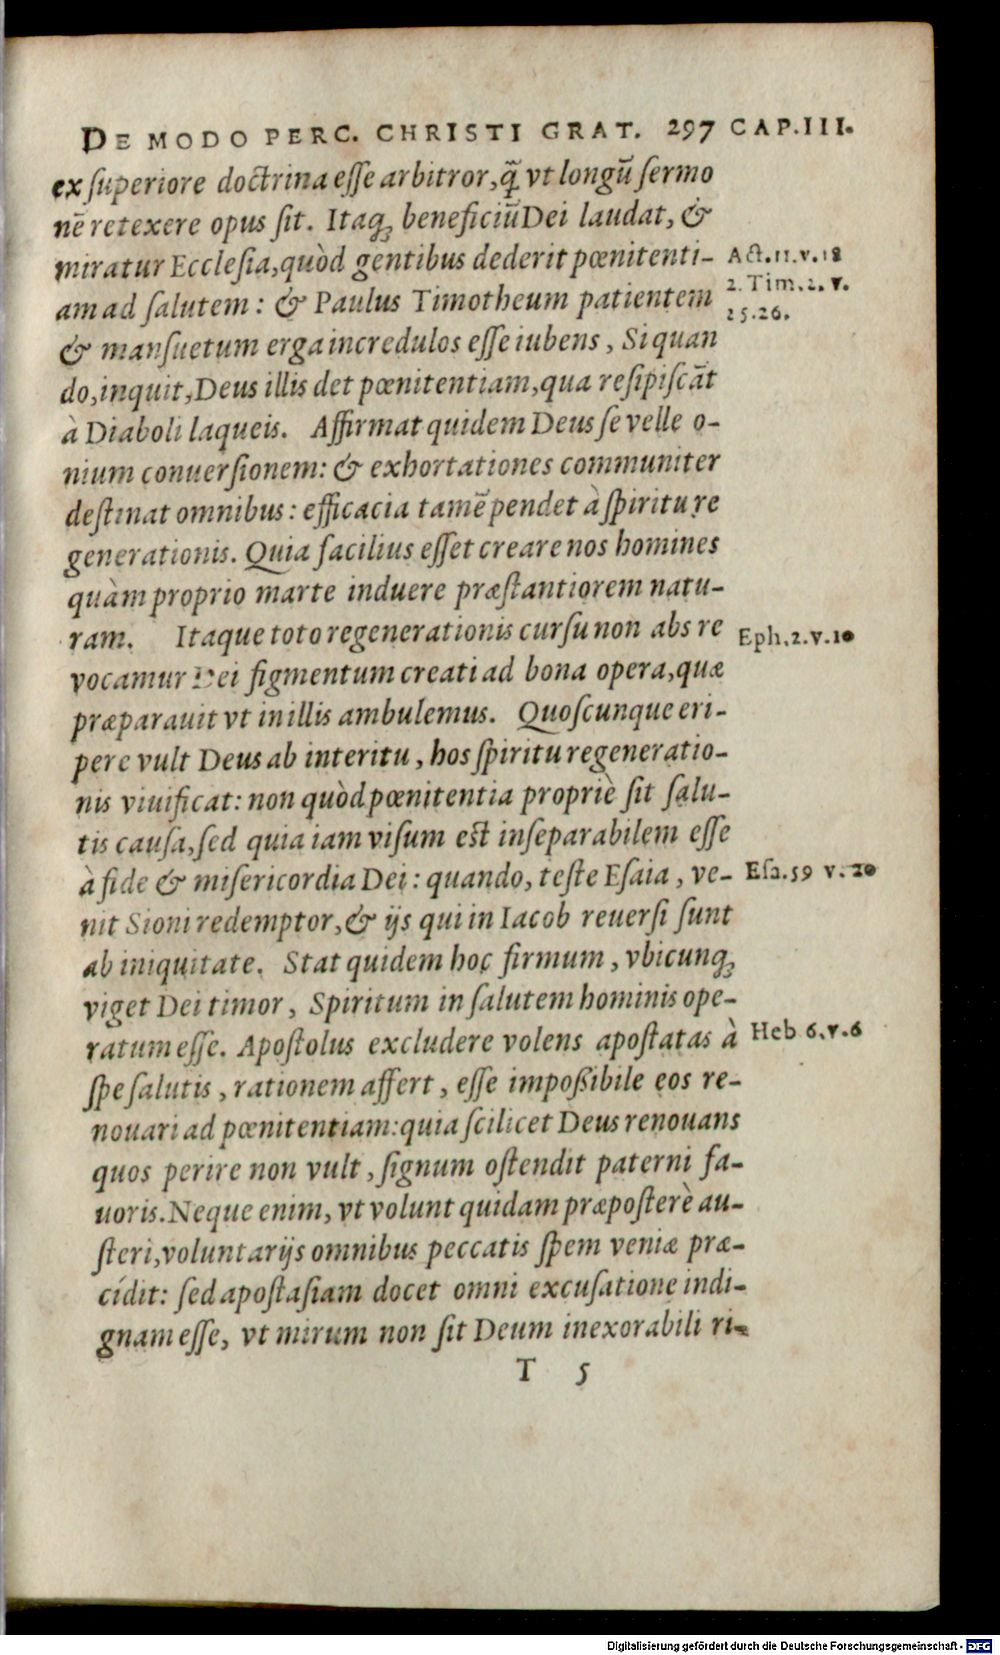 DE MODO PERC. CHRISTI GRAT. 297 CAP.III.
ex ſuperiore doctrina eſſe arbitror,q̃ vt longũ ſermo
nẽ retexere opus ſit. Itaq; beneficiũ Dei laudat, &
miratur Eccleſia,quòd gentibus dederit pœnitenti-
Act.11.v.18
am ad ſalutem: & Paulus Timotheum patientem
2. Tim.2. v.
25.26.
& manſuetum erga incredulos eſſe iubens, Si quan
do,inquit,Deus illis det pœnitentiam,qua reſipiſcãt
à Diaboli laqueis. Affirmat quidem Deus ſe velle o-
nium conuerſionem: & exhortationes communiter
deſtinat omnibus: efficacia tamẽ pendet à ſpiritu re
generationis. Quia facilius eſſet creare nos homines
quàm proprio marte induere præſtantiorem natu-
ram. Itaque toto regenerationis curſu non abs re
Eph.2.v.10
vocamur Dei figmentum creati ad bona opera,quæ
præparauit vt in illis ambulemus. Quoſcunque eri-
pere vult Deus ab interitu, hos ſpiritu regeneratio-
nis viuificat: non quòd pœnitentia propriè ſit ſalu-
tis cauſa,ſed quia iam viſum eſt inſeparabilem eſſe
à fide & miſericordia Dei: quando, teſte Eſaia, ve-
Eſa.59 v.20
nit Sioni redemptor,& ijs qui in Iacob reuerſi ſunt
ab iniquitate. Stat quidem hoc firmum, vbicunq;
viget Dei timor, Spiritum in ſalutem hominis ope-
ratum eſſe. Apoſtolus excludere volens apoſtatas à
Heb 6.v.6
ſpe ſalutis, rationem affert, eſſe impoßibile eos re-
nouari ad pœnitentiam:quia ſcilicet Deus renouans
quos perire non vult, ſignum oſtendit paterni fa-
uoris. Neque enim, vt volunt quidam præpoſterè au-
ſteri,voluntarijs omnibus peccatis ſpem veniæ præ-
cidit: ſed apoſtaſiam docet omni excuſatione indi-
gnam eſſe, vt mirum non ſit Deum inexorabili ri-
T 5
Digitalisierung gefördert durch die Deutsche Forschungsgemeinschaft - DFG